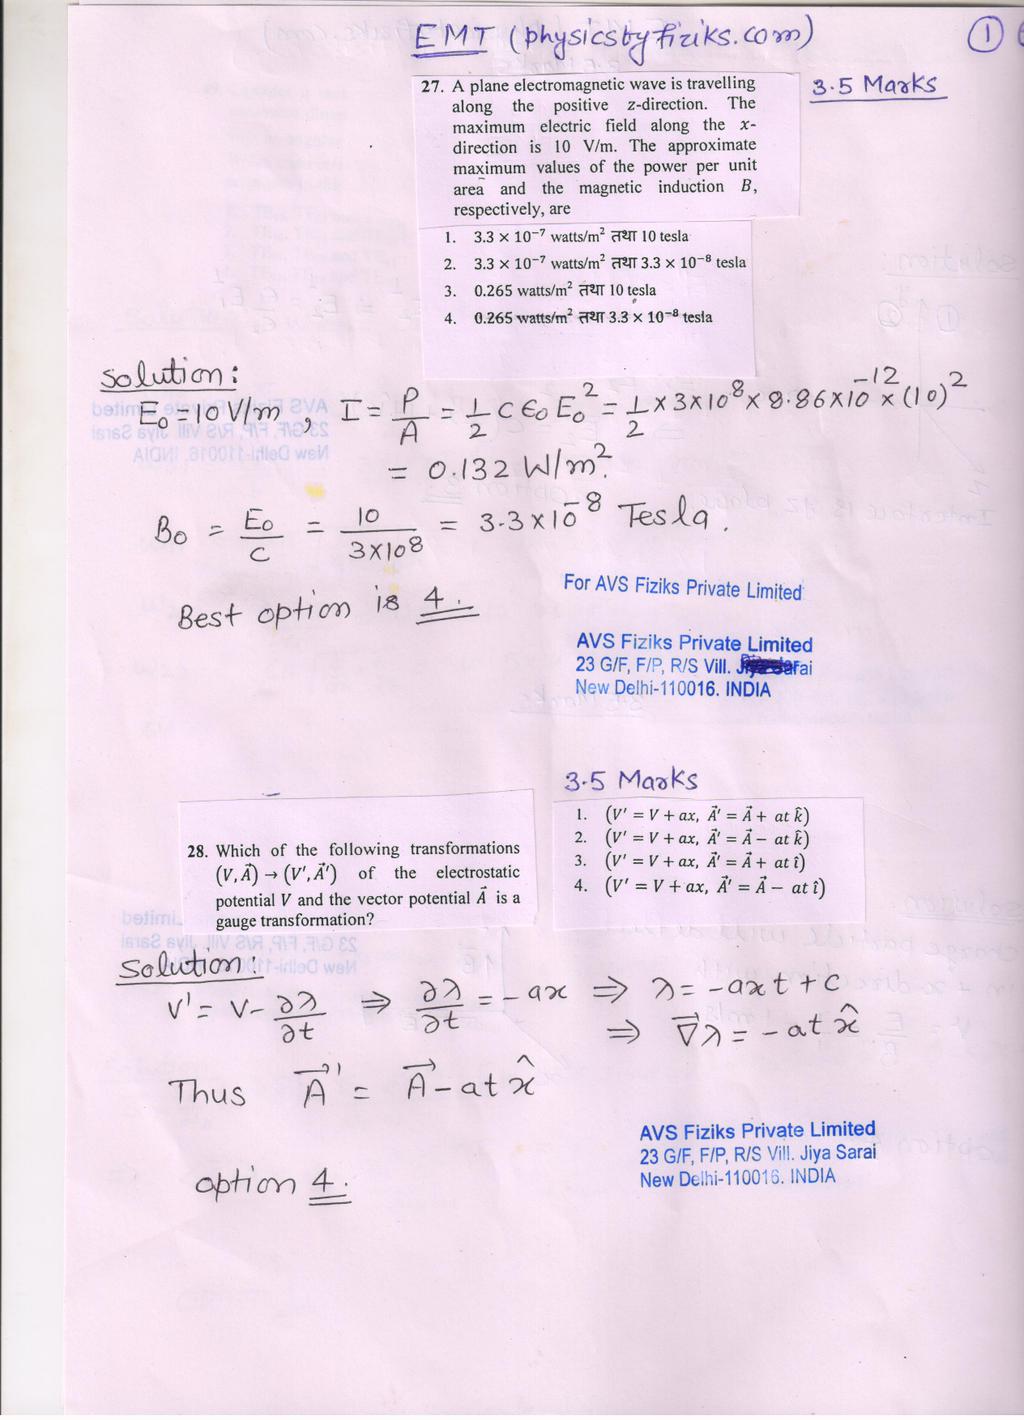 EMT (physicsbyfiziks.com)
1
3.5 Marks
27. A plane electromagnetic wave is travelling
along the positive z-direction. The
maximum electric field along the x-
direction is 10 V/m. The approximate
maximum values of the power per unit
area and the magnetic induction B,
respectively, are
1. 3.3 × 10⁻⁷ watts/m² तथा 10 tesla
2. 3.3 × 10⁻⁷ watts/m² तथा 3.3 × 10⁻⁸ tesla
3. 0.265 watts/m² तथा 10 tesla
4. 0.265 watts/m² तथा 3.3 × 10⁻⁸ tesla
Solution:
E₀ = 10 V/m, I = P/A = 1/2 C ϵ₀ E₀² = 1/2 × 3×10⁸ × 8.86×10⁻¹² × (10)²
= 0.132 W/m².
B₀ = E₀/C = 10/3×10⁸ = 3.3×10⁻⁸ Tesla.
Best option is 4.
For AVS Fiziks Private Limited
AVS Fiziks Private Limited
23 G/F, F/P, R/S Vill.
New Delhi-110016. INDIA
3.5 Marks
28. Which of the following transformations
(V, A⃗) → (V′, A⃗′) of the electrostatic
potential V and the vector potential A⃗ is a
gauge transformation?
1. (V′ = V + ax, A⃗′ = A⃗ + at k̂)
2. (V′ = V + ax, A⃗′ = A⃗ − at k̂)
3. (V′ = V + ax, A⃗′ = A⃗ + at î)
4. (V′ = V + ax, A⃗′ = A⃗ − at î)
Solution:
V' = V - ∂λ/∂t ⇒ ∂λ/∂t = -ax ⇒ λ = -axt + C
⇒ ∇⃗λ = -at x̂
Thus A⃗' = A⃗ - at x̂
option 4.
AVS Fiziks Private Limited
23 G/F, F/P, R/S Vill. Jiya Sarai
New Delhi-110016. INDIA